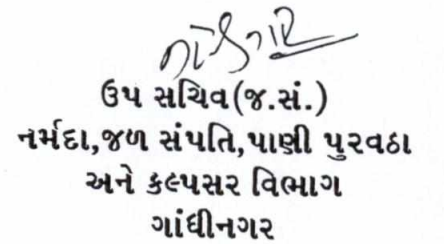 ઉપ સચિવ(જ.સં.)
નર્મદા,જળ સંપતિ,પાણી પુરવઠા
અને કલ્પસર વિભાગ
ગાંધીનગર